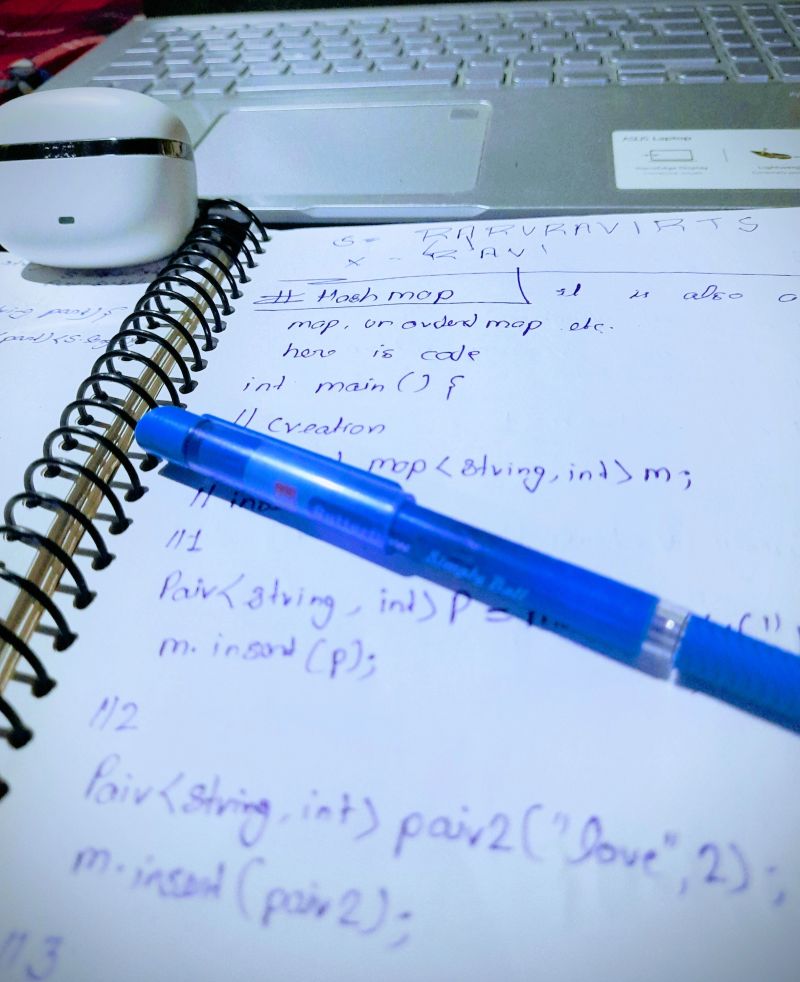 ASUS Laptop
S = RARVRAVIRTS
x - RAVI
# Hash map | It is also
map, un ordered map etc.
here is code
int main () {
// creation
map<string,int> m;
//1
Pair<string, int> P =
m.insert (p);
//2
Pair<string, int> pair2("love",2);
m.insert (pair2);
//3
Simply Ball